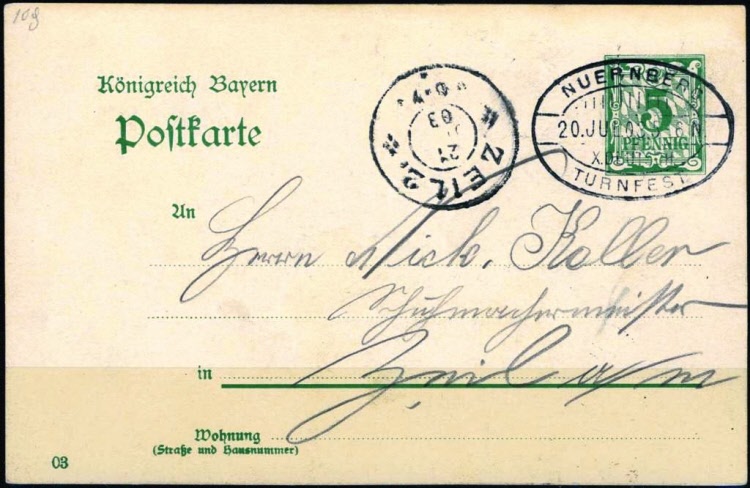 10g
Königreich Bayern
Postkarte
ZEIL 2
21
03
NUERNBERG
20.JUL 03 6 N
X.DEUTSCH
TURNFEST
5
PFENNIG
An
Herrn Nick. Koller
Schuhmachermeister
in Zeil a/m
Wohnung
(Straße und Hausnummer)
03